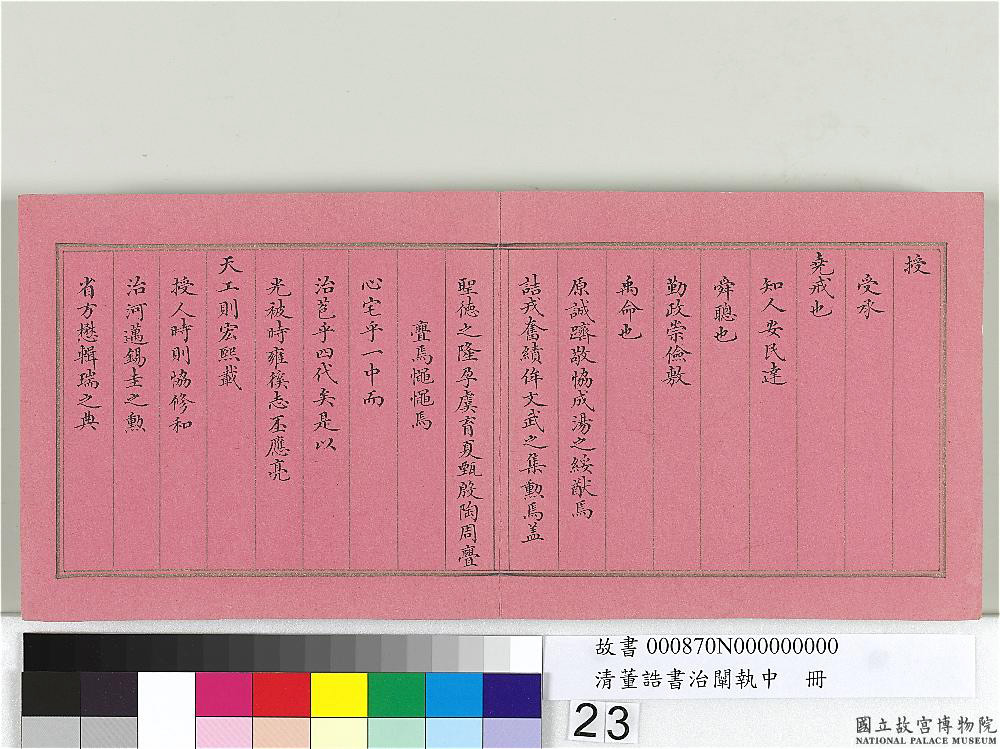 授
受永
堯戒也
知人安民達
舜聰也
勤政崇儉敷
禹命也
原誠躋敬協成湯之綏猷焉
詰戎奮績侔文武之集勲焉盖
聖德之隆孕虞育夏甄殷陶周亹
亹焉慥慥焉
心宅乎一中而
治苞乎四代矣是以
光被時雍徯志丕應亮
天工則宏熙載
授人時則協修和
治河邁錫圭之勲
省方懋輯瑞之典
故書 000870N000000000
清董誥書治闡執中 冊
23
國立故宮博物院
NATIONAL PALACE MUSEUM